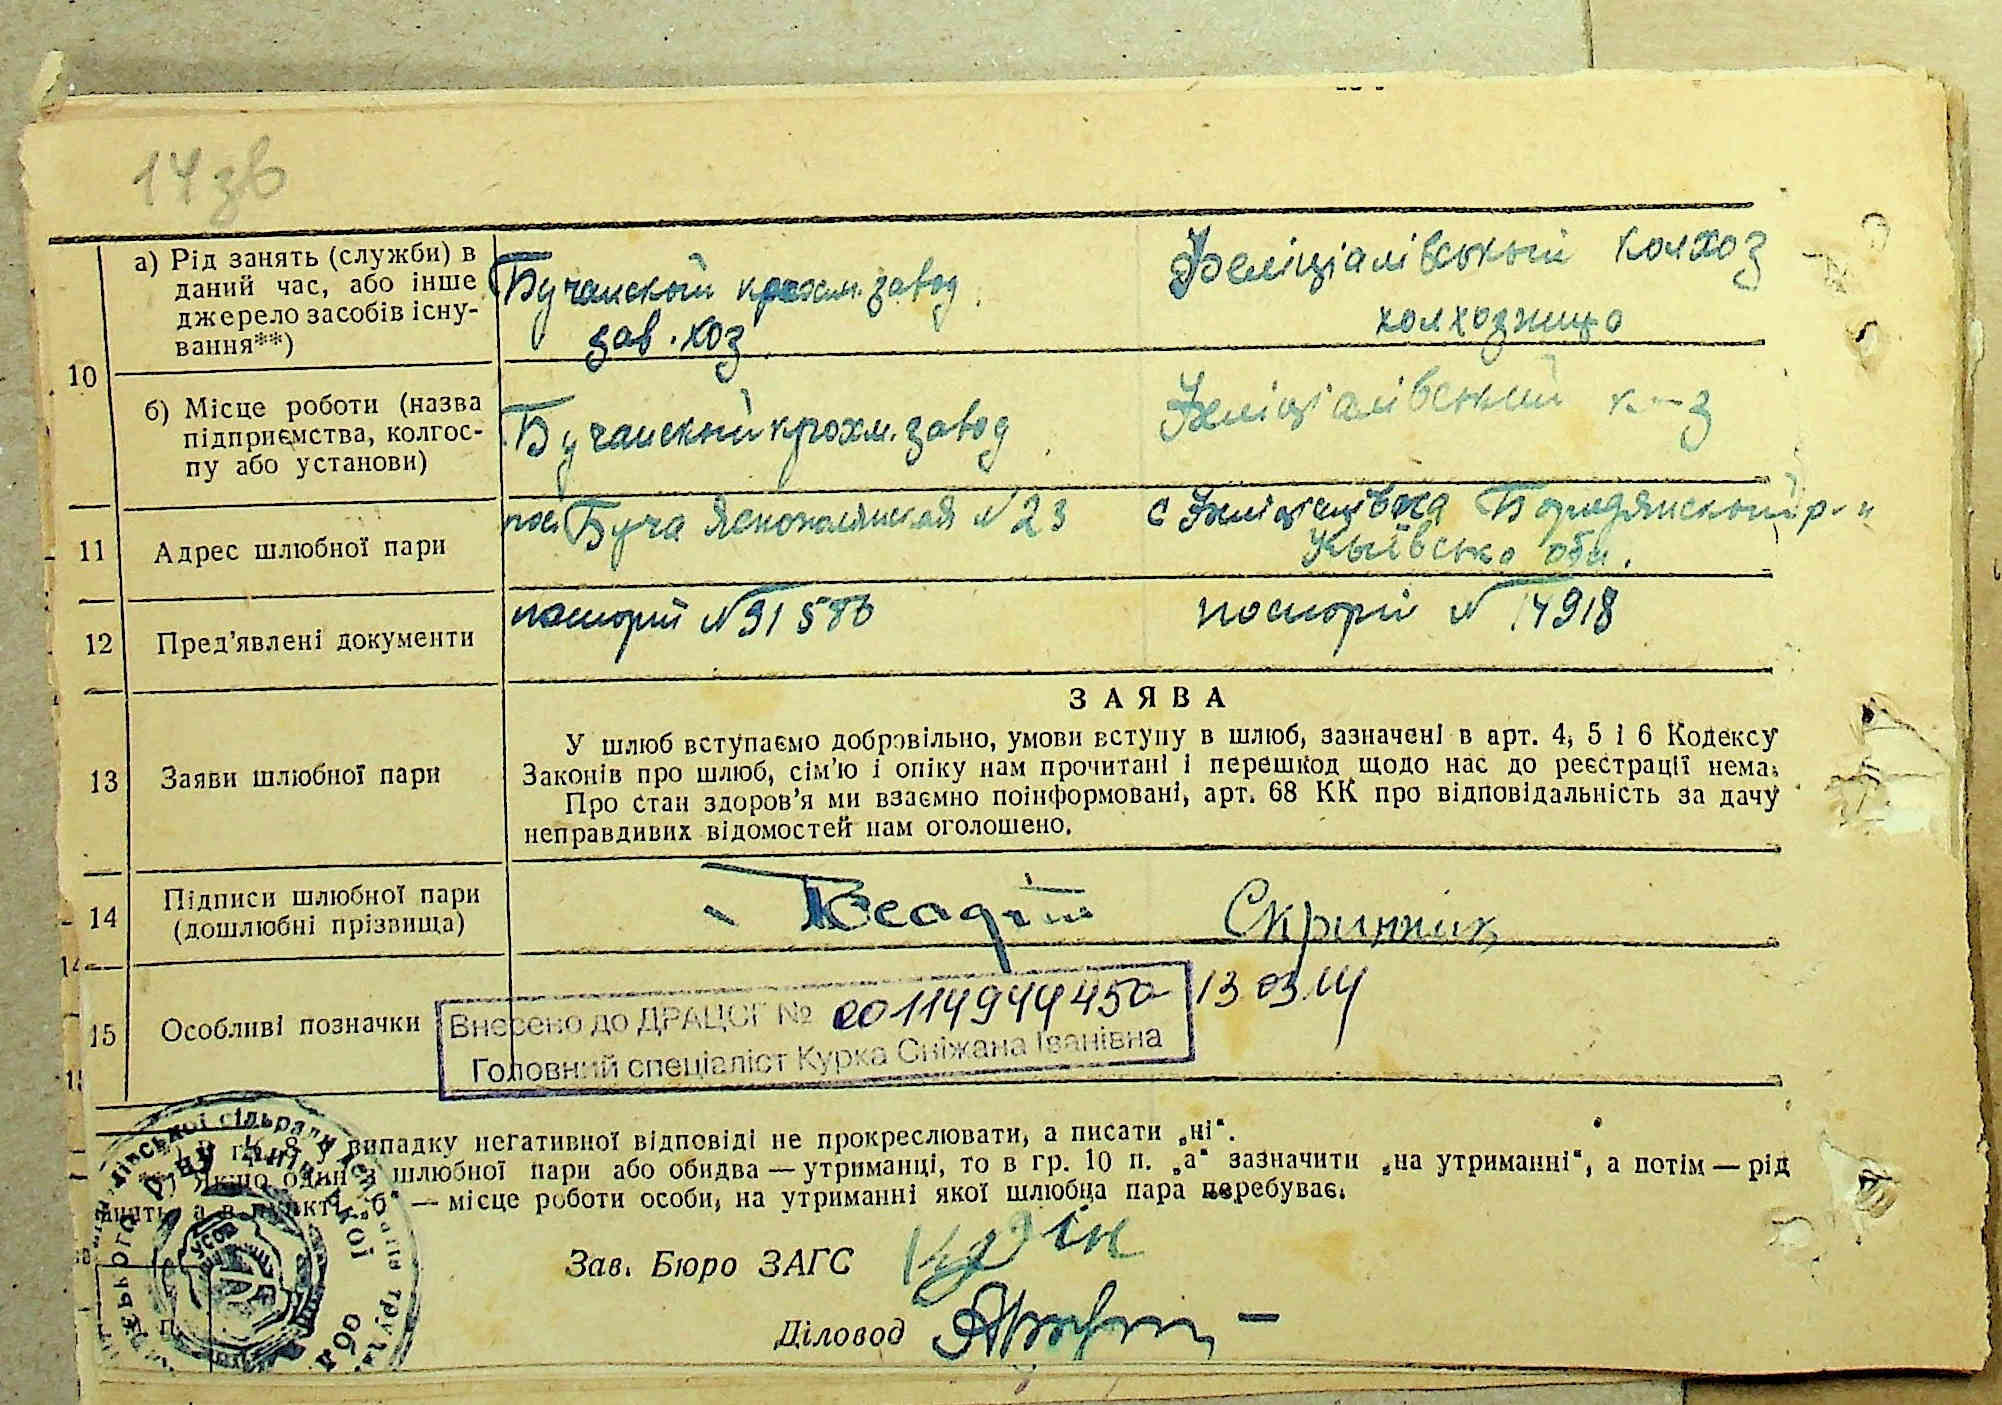 14 зв
10
а) Рід занять (служби) в
даний час, або інше
джерело засобів існу-
вання**)
Бучанский крохм. завод
зав. хоз
колхоз
б) Місце роботи (назва
підприємства, колгос-
пу або установи)
Бучанский крохм. завод
к-з
11
Адрес шлюбної пари
пос. Буча Яснополянская № 23
с. Бородянский р-н
Київсько обл.
12
Пред’явлені документи
паспорт №
паспорт №
13
Заяви шлюбної пари
ЗАЯВА
У шлюб вступаємо добровільно, умови вступу в шлюб, зазначені в арт. 4, 5 і 6 Кодексу
Законів про шлюб, сім’ю і опіку нам прочитані і перешкод щодо нас до реєстрації нема.
Про стан здоров’я ми взаємно поінформовані, арт. 68 КК про відповідальність за дачу
неправдивих відомостей нам оголошено.
14
Підписи шлюбної пари
(дошлюбні прізвища)
Скрипник
15
Особливі позначки
Внесено до ДРАЦСГ № 00114944450
Головний спеціаліст Курка Сніжана Іванівна
13 03
випадку негативної відповіді не прокреслювати, а писати „ні“.
Якщо один з шлюбної пари або обидва — утриманці, то в гр. 10 п. „а“ зазначити „на утриманні“, а потім — рід
а в пункті „б“ — місце роботи особи, на утриманні якої шлюбна пара перебуває.
Зав. Бюро ЗАГС
Діловод
УСРР